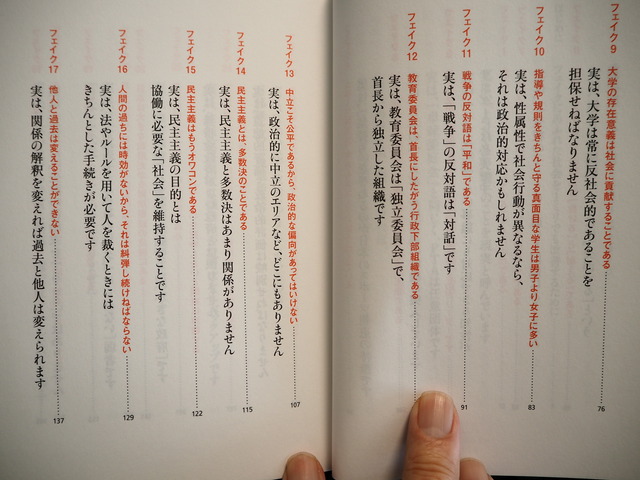 フェイク9 大学の存在意義は社会に貢献することである
実は、大学は常に反社会的であることを
担保せねばなりません 76
フェイク10 指導や規則をきちんと守る真面目な学生は男子より女子に多い
実は、性属性で社会行動が異なるなら、
それは政治的対応かもしれません 83
フェイク11 戦争の反対語は「平和」である
実は、「戦争」の反対語は「対話」です 91
フェイク12 教育委員会は、首長にしたがう行政下部組織である
実は、教育委員会は「独立委員会」で、
首長から独立した組織です
フェイク13 中立こそ公平であるから、政治的な偏向があってはいけない
実は、政治的に中立のエリアなど、どこにもありません 107
フェイク14 民主主義とは、多数決のことである
実は、民主主義と多数決はあまり関係がありません 115
フェイク15 民主主義はもうオワコンである
実は、民主主義の目的とは
協働に必要な「社会」を維持することです 122
フェイク16 人間の過ちには時効がないから、それは糾弾し続けねばならない
実は、法やルールを用いて人を裁くときには
きちんとした手続きが必要です 129
フェイク17 他人と過去は変えることができない
実は、関係の解釈を変えれば過去と他人は変えられます 137